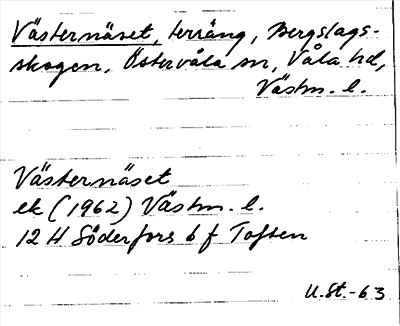 Västernäset, terräng, Bergslags-
skogen, Östervåla sn, Våla hd,
Västm. l.
Västernäset
ek (1962) Västm. l.
12 H Söderfors 6 f Toften
U.St.-63